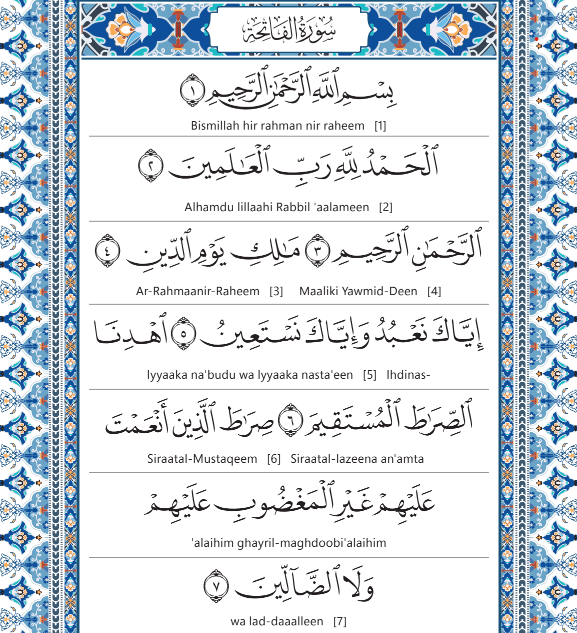 سُورَةُ الفَاتِحَةِ
بِسْمِ ٱللَّهِ ٱلرَّحْمَٰنِ ٱلرَّحِيمِ ١
Bismillah hir rahman nir raheem [1]
ٱلْحَمْدُ لِلَّهِ رَبِّ ٱلْعَٰلَمِينَ ٢
Alhamdu lillaahi Rabbil 'aalameen [2]
ٱلرَّحْمَٰنِ ٱلرَّحِيمِ ٣ مَٰلِكِ يَوْمِ ٱلدِّينِ ٤
Ar-Rahmaanir-Raheem [3] Maaliki Yawmid-Deen [4]
إِيَّاكَ نَعْبُدُ وَإِيَّاكَ نَسْتَعِينُ ٥ ٱهْدِنَا
Iyyaaka na'budu wa Iyyaaka nasta'een [5] Ihdinas-
ٱلصِّرَٰطَ ٱلْمُسْتَقِيمَ ٦ صِرَٰطَ ٱلَّذِينَ أَنْعَمْتَ
Siraatal-Mustaqeem [6] Siraatal-lazeena an'amta
عَلَيْهِمْ غَيْرِ ٱلْمَغْضُوبِ عَلَيْهِمْ
'alaihim ghayril-maghdoobi'alaihim
وَلَا ٱلضَّآلِّينَ ٧
wa lad-daaalleen [7]